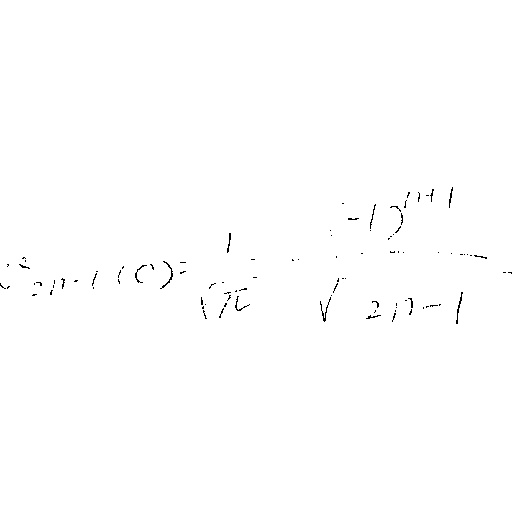 c²_{2n-1}(C) = \frac{1}{\sqrt{\pi}} \frac{(-1)^{n+1}}{\sqrt{2n-1}}